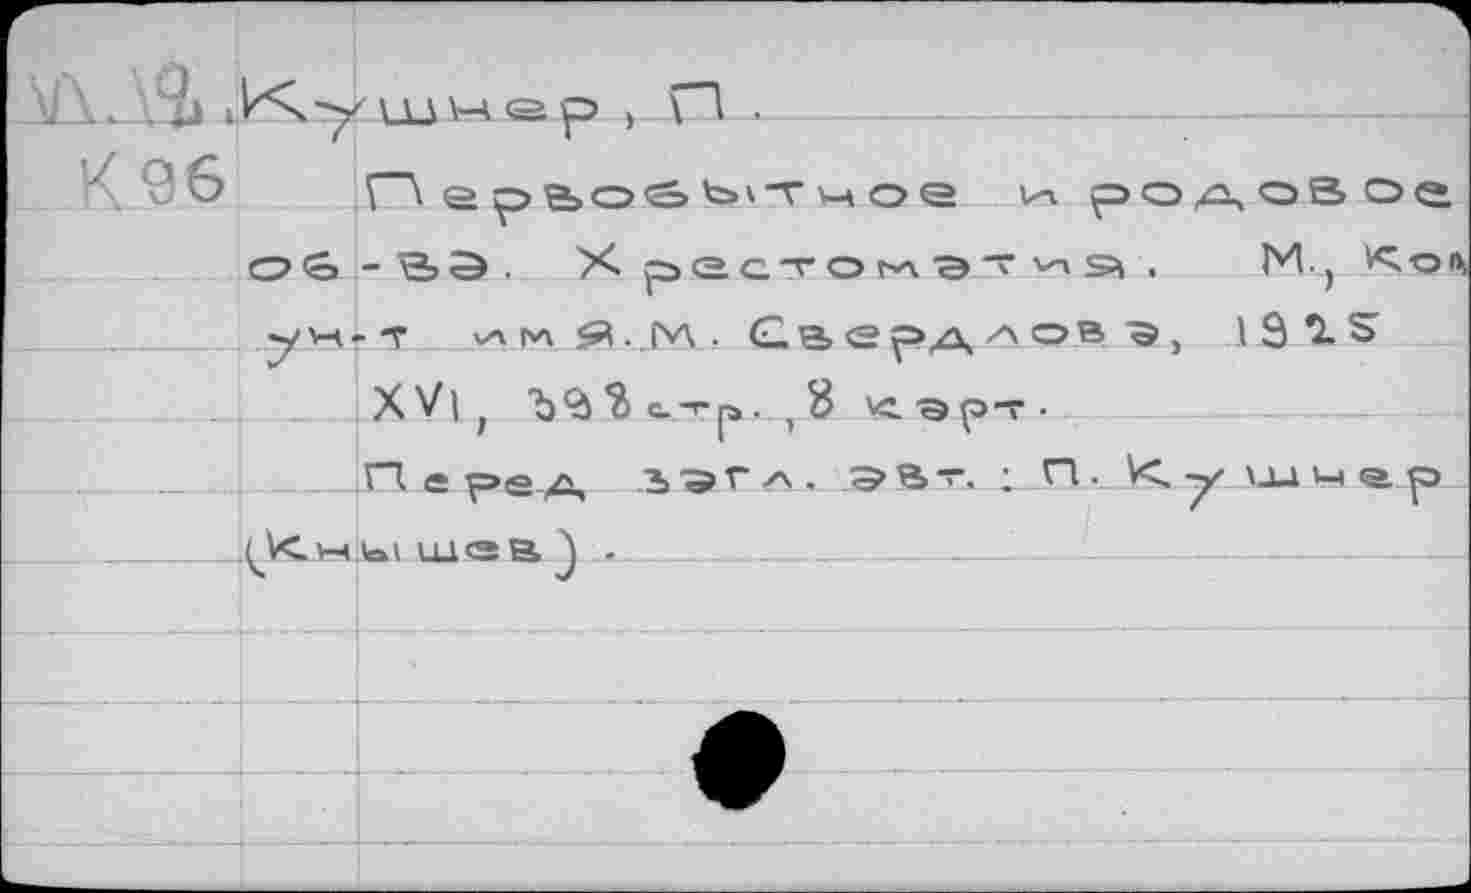 И.19. Кушнер, П.
К96 Первобытное и родовое
об-ва. Хрестоматия. М., Ком
ун-т им Я.М. Свердлова, 1925
XVI, 398 стр., 8 карт.
Перед загл. авт.: П. Кушнер
(Кнышев).